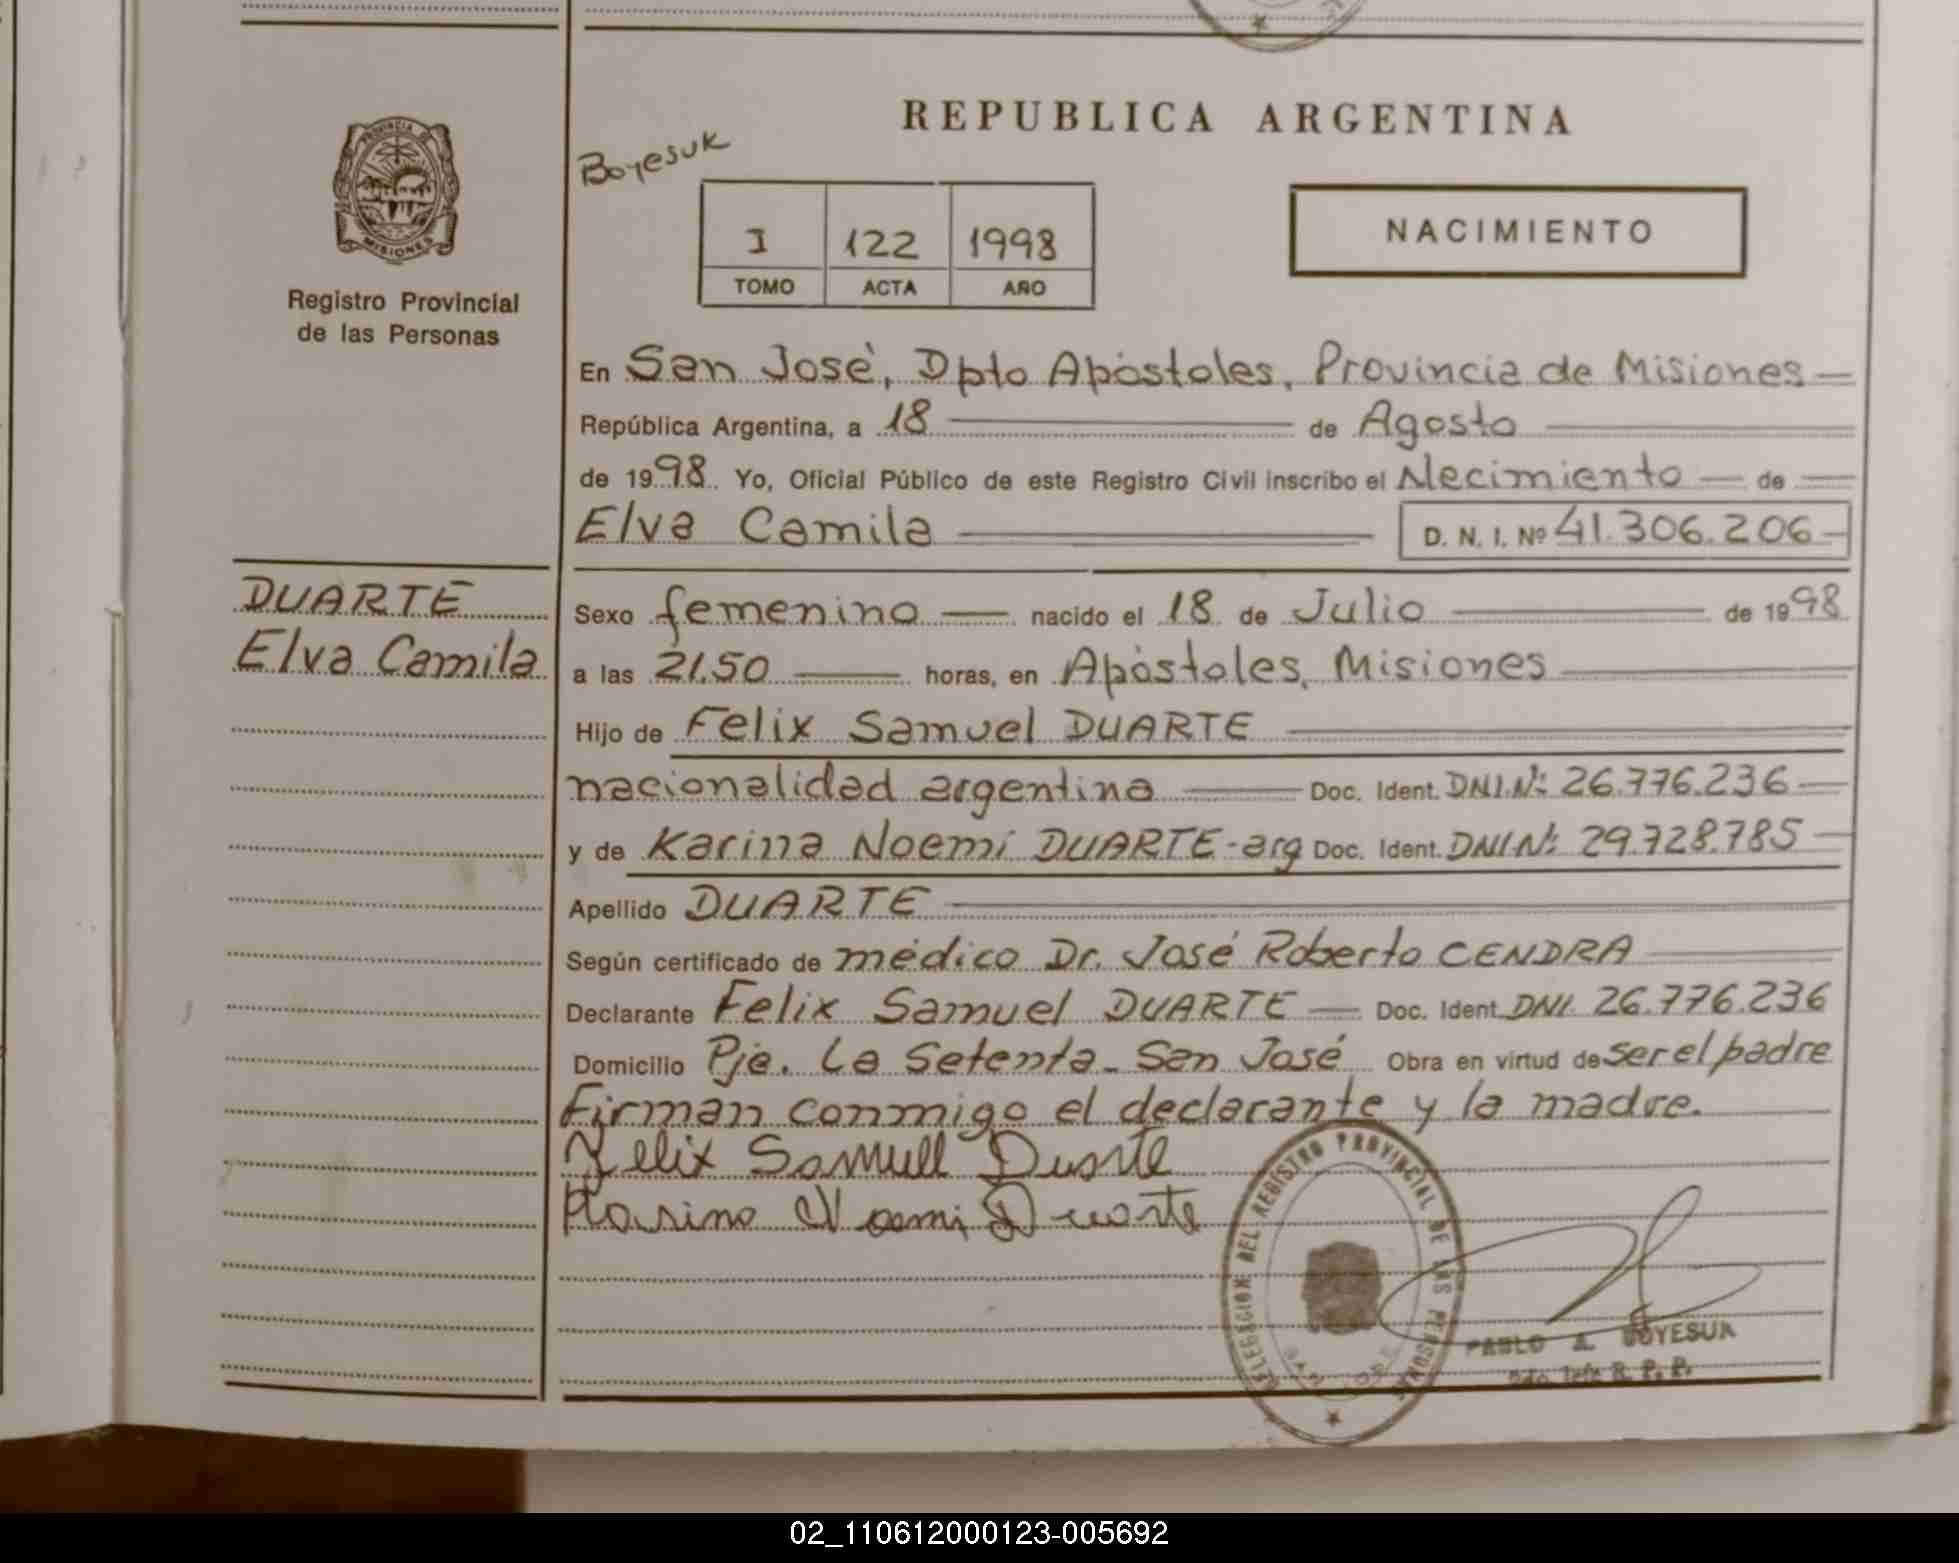 REPUBLICA ARGENTINA
Boyesuk
PROVINCIA DE
MISIONES
Registro Provincial
de las Personas
I 122 1998
TOMO ACTA AÑO
NACIMIENTO
En San José, Dpto Apóstoles, Provincia de Misiones
República Argentina, a 18 de Agosto
de 1998. Yo, Oficial Público de este Registro Civil inscribo el Nacimiento de
Elva Camila D. N. I. Nº 41.306.206
DUARTE
Elva Camila
Sexo femenino nacido el 18 de Julio de 1998
a las 21,50 horas, en Apóstoles, Misiones
Hijo de Felix Samuel DUARTE
nacionalidad argentina Doc. Ident. DNI.Nº: 26.776.236
y de Karina Noemí DUARTE-arg Doc. Ident. DNI Nº: 29.728.785
Apellido DUARTE
Según certificado de médico Dr. José Roberto CENDRA
Declarante Felix Samuel DUARTE Doc. Ident. DNI. 26.776.236
Domicilio Pje. La Setenta - San José Obra en virtud de ser el padre
Firman conmigo el declarante y la madre.
Felix Samuell Duarte
Karina Noemi Duarte
DELEGACION DEL REGISTRO PROVINCIAL DE LAS PERSONAS
SAN JOSE
PABLO A. BOYESUK
Jefe R. P. P.
02_110612000123-005692